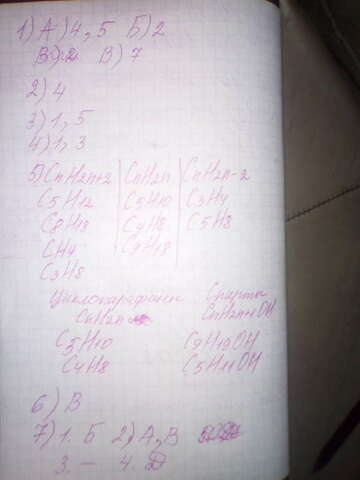 1) А) 4, 5 Б) 2
В) 7
2) 4
3) 1, 5
4) 1, 3
5) CnH2n+2 | CnH2n | CnH2n-2
C5H12 | C5H10 | C3H4
C8H18 | C4H8 | C5H8
CH4 | C9H18
C3H8
Циклопарафани Спирты
CnH2n CnH2n+1OH
C5H10 C9H19OH
C4H8 C5H11OH
6) В
7) 1. Б 2) А, В
3. — 4. Д